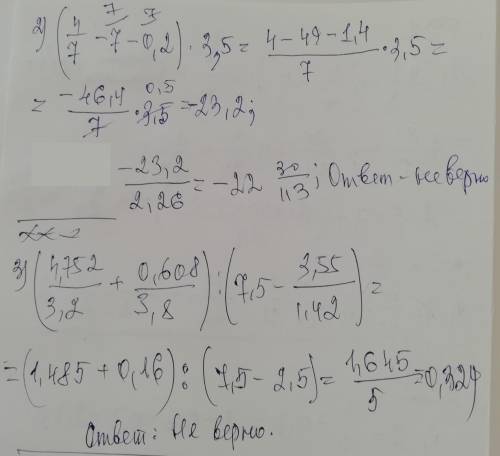 7 7
2) (4/7 - 7 - 0,2) · 3,5 = (4 - 49 - 1,4)/7 · 3,5 =
= -46,4/7 · 3,5 0,5 = -23,2;
-23,2/2,26 = -22 30/113; Ответ - не верно
3) (4,752/3,2 + 0,608/3,8) : (7,5 - 3,55/1,42) =
= (1,485 + 0,16) : (7,5 - 2,5) = 1,645/5 = 0,329
Ответ: Не верно.